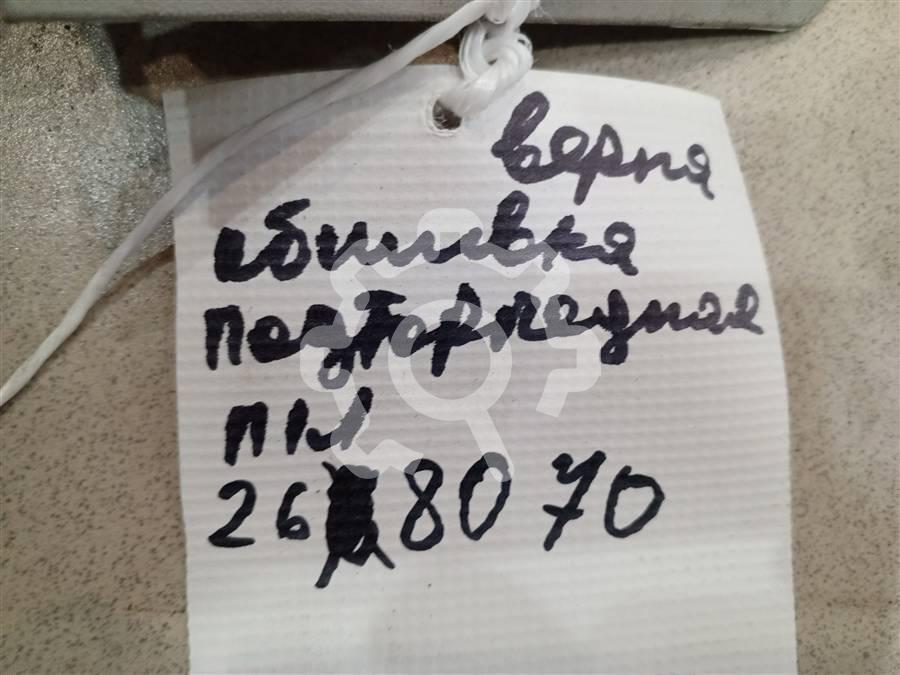 верна
обшивка
подторпедная
пл
26 80 70